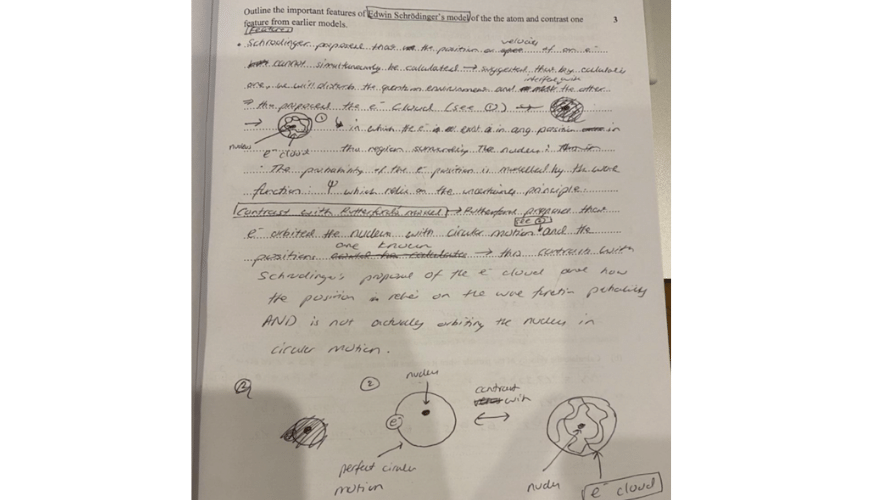 Outline the important features of Edwin Schrödinger's model of the the atom and contrast one 3
feature from earlier models.
Features
• Schrodinger proposed that the position or velocity of an e⁻
cannot simultaneously be calculated → suggested that by calculating
one, we will disturb the quantum environment and interfere with the other
⇒ He proposed the e⁻ cloud (see ①) →
→ ① ↳ in which the e⁻ exist in any position in
nucleus e⁻ cloud the region surrounding the nucleus.
• The probability of the e⁻ position is modelled by the wave
function: Ψ which relies on the uncertainty principle
Contrast with Rutherford's model → Rutherford proposed that
see ②
e⁻ orbited the nucleus with circular motion and the
positions are known → this contrasts with
Schrodinger's proposal of the e⁻ cloud and how
the position relies on the wave function probability
AND is not actually orbiting the nucleus in
circular motion.
② nucleus contrast with
e⁻
perfect circular motion
nucleus e⁻ cloud